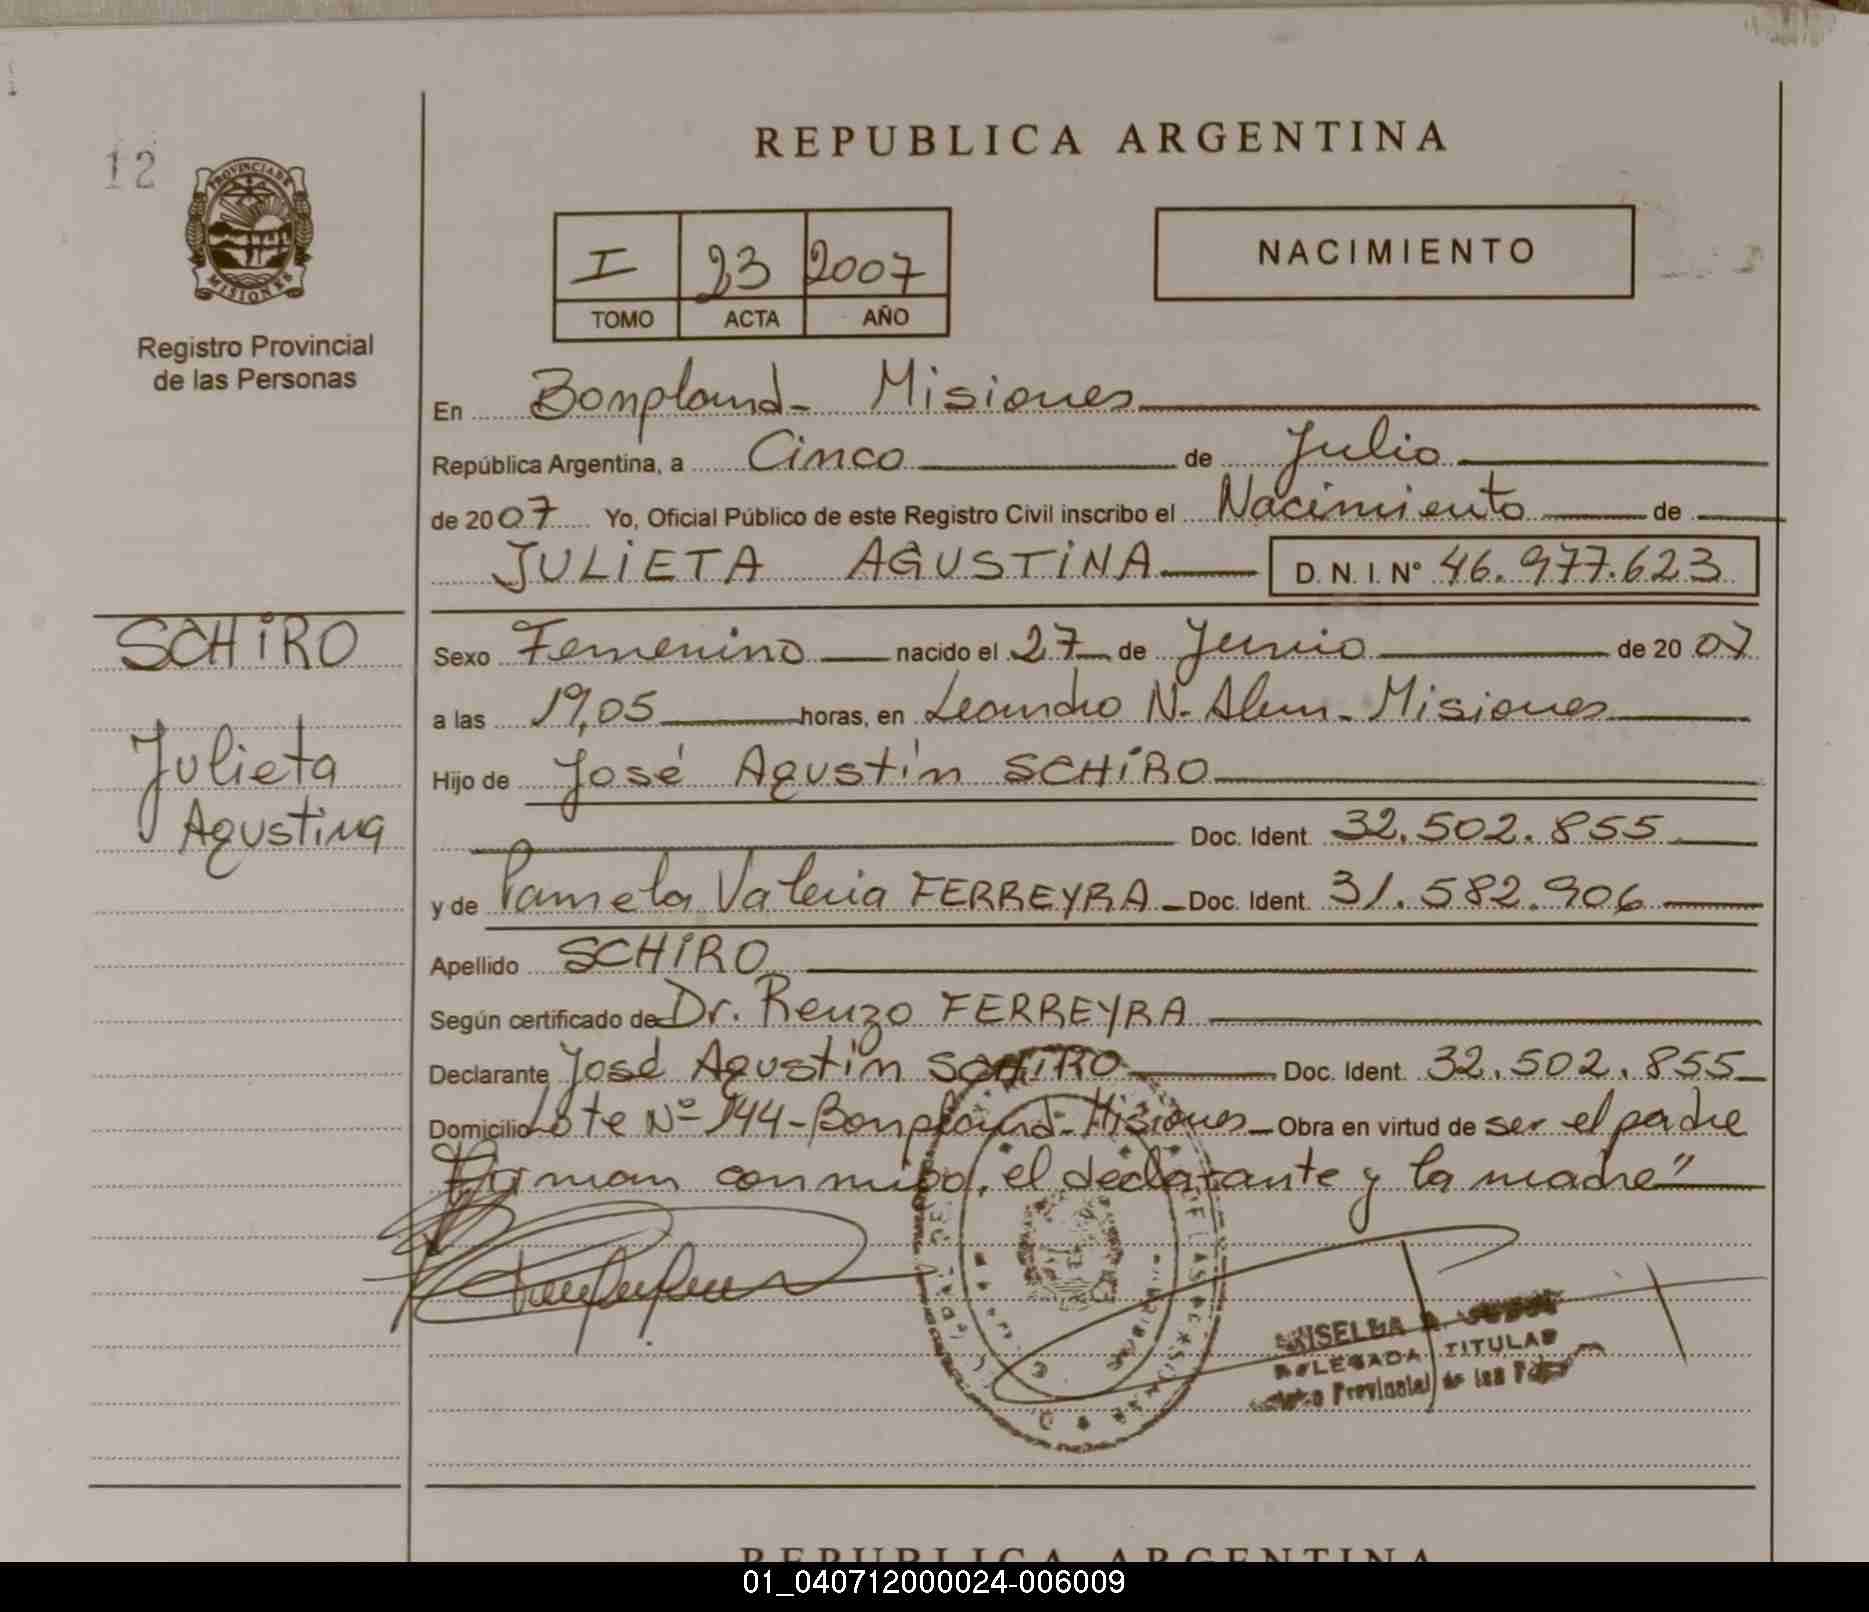 12
PROVINCIA DE
MISIONES
Registro Provincial
de las Personas
REPUBLICA ARGENTINA
I 23 2007
TOMO ACTA AÑO
NACIMIENTO
En Bompland - Misiones
República Argentina, a Cinco de Julio
de 2007 Yo, Oficial Público de este Registro Civil inscribo el Nacimiento de
JULIETA AGUSTINA D.N.I. Nº 46.977.623
SCHIRO
Julieta
Agustina
Sexo Femenino nacido el 27 de Junio de 2007
a las 19,05 horas, en Leandro N. Alem - Misiones
Hijo de José Agustín SCHIRO
Doc. Ident. 32.502.855
y de Pamela Valeria FERREYRA - Doc. Ident. 31.582.906
Apellido SCHIRO
Según certificado de Dr. Renzo FERREYRA
Declarante José Agustín SCHIRO Doc. Ident. 32.502.855
Domicilio Lote Nº 144 - Bompland - Misiones - Obra en virtud de ser el padre
"Firman conmigo, el declarante y la madre"
TITULAR
Provincial de las
REPUBLICA ARGENTINA
01_040712000024-006009